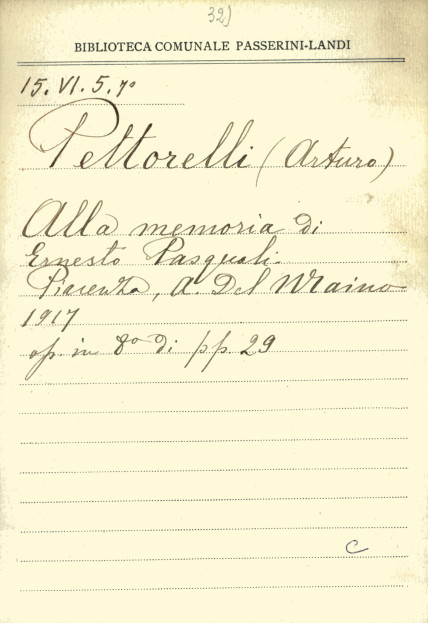 32)
BIBLIOTECA COMUNALE PASSERINI-LANDI
15. VI. 5. 7º
Pettorelli (Arturo)
Alla memoria di
Ernesto Pasquali.
Piacenza, A. Del Maino
1917
op. in 8º di pp 29
C